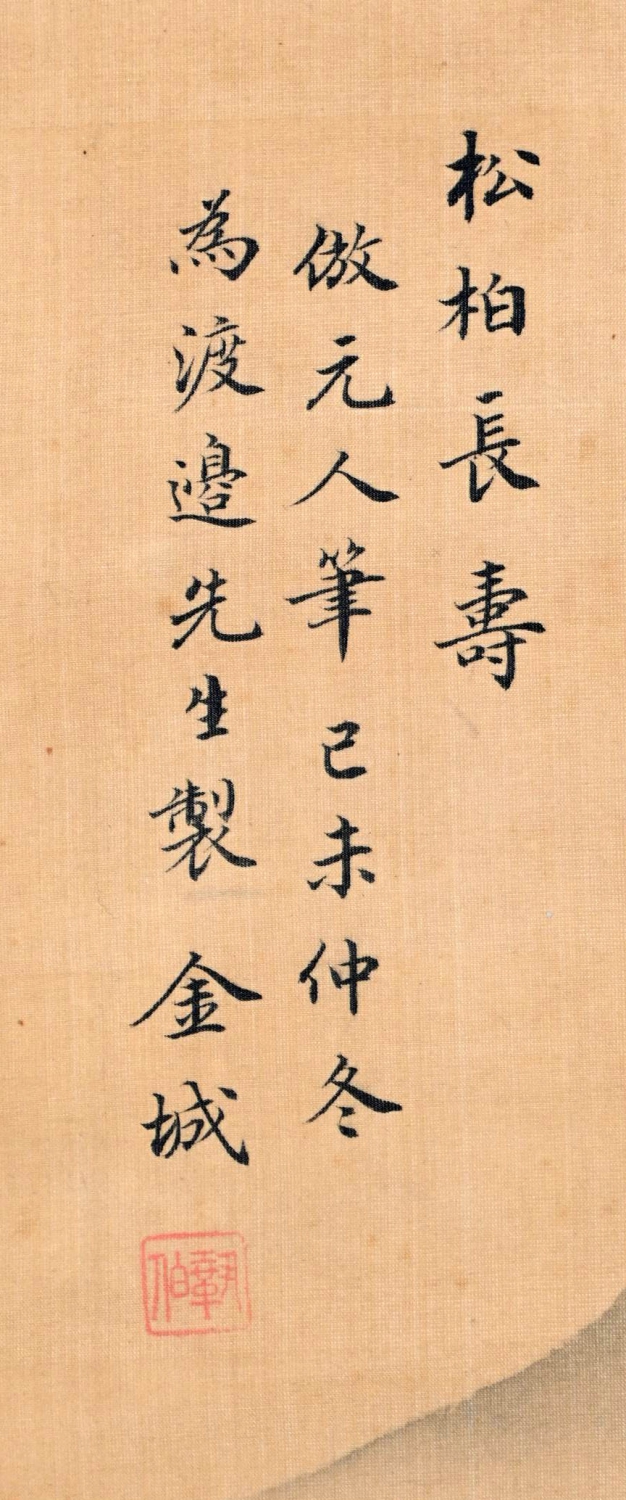 松柏長壽
倣元人筆己未仲冬
為渡邊先生製 金城
鞏伯